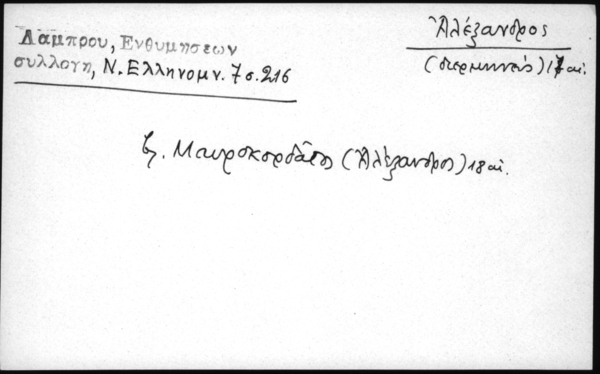 Λάμπρου, Ενθυμήσεων
συλλογη, Ν. Ελληνομν. 7 σ. 216
Ἀλέξανδρος
(διερμηνεύς) 17 αἰ.
βλ. Μαυροκορδᾶτος (Ἀλέξανδρος) 18 αἰ.